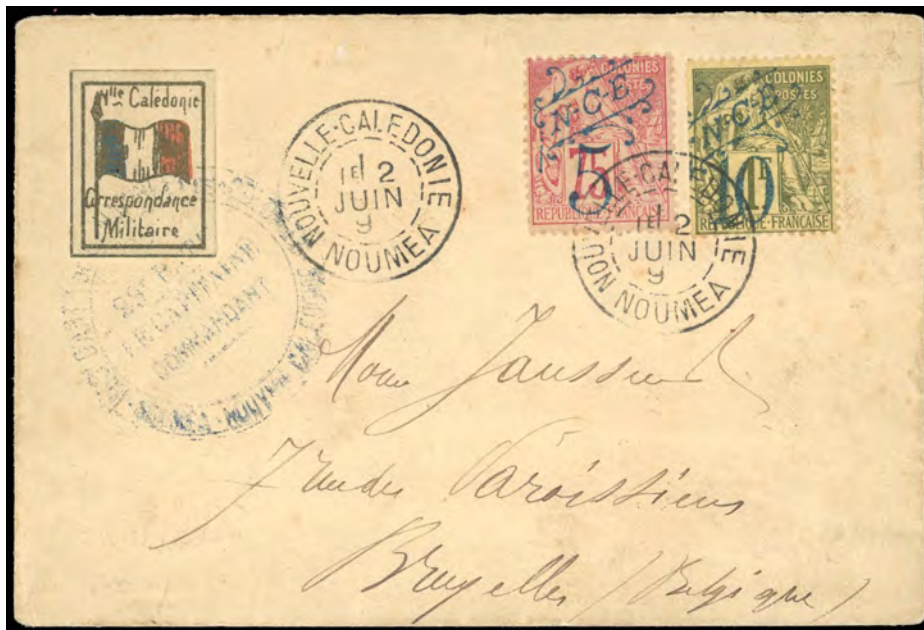 Nlle Calédonie
Correspondance
Militaire
NOUVELLE-CALEDONIE
1el 2
JUIN
9
NOUMEA
COLONIES
POSTES
N.C.E.
5
75
REPUBLIQUE FRANÇAISE
COLONIES
POSTES
N.C.E.
10
1F
REPUBLIQUE FRANÇAISE
NOUVELLE-CALEDONIE
1el 2
JUIN
9
NOUMEA
LE CAPITAINE
COMMANDANT
NOUVELLE CALEDONIE
Janssen
7 rue des Paroissiens
Bruxelles (Belgique)